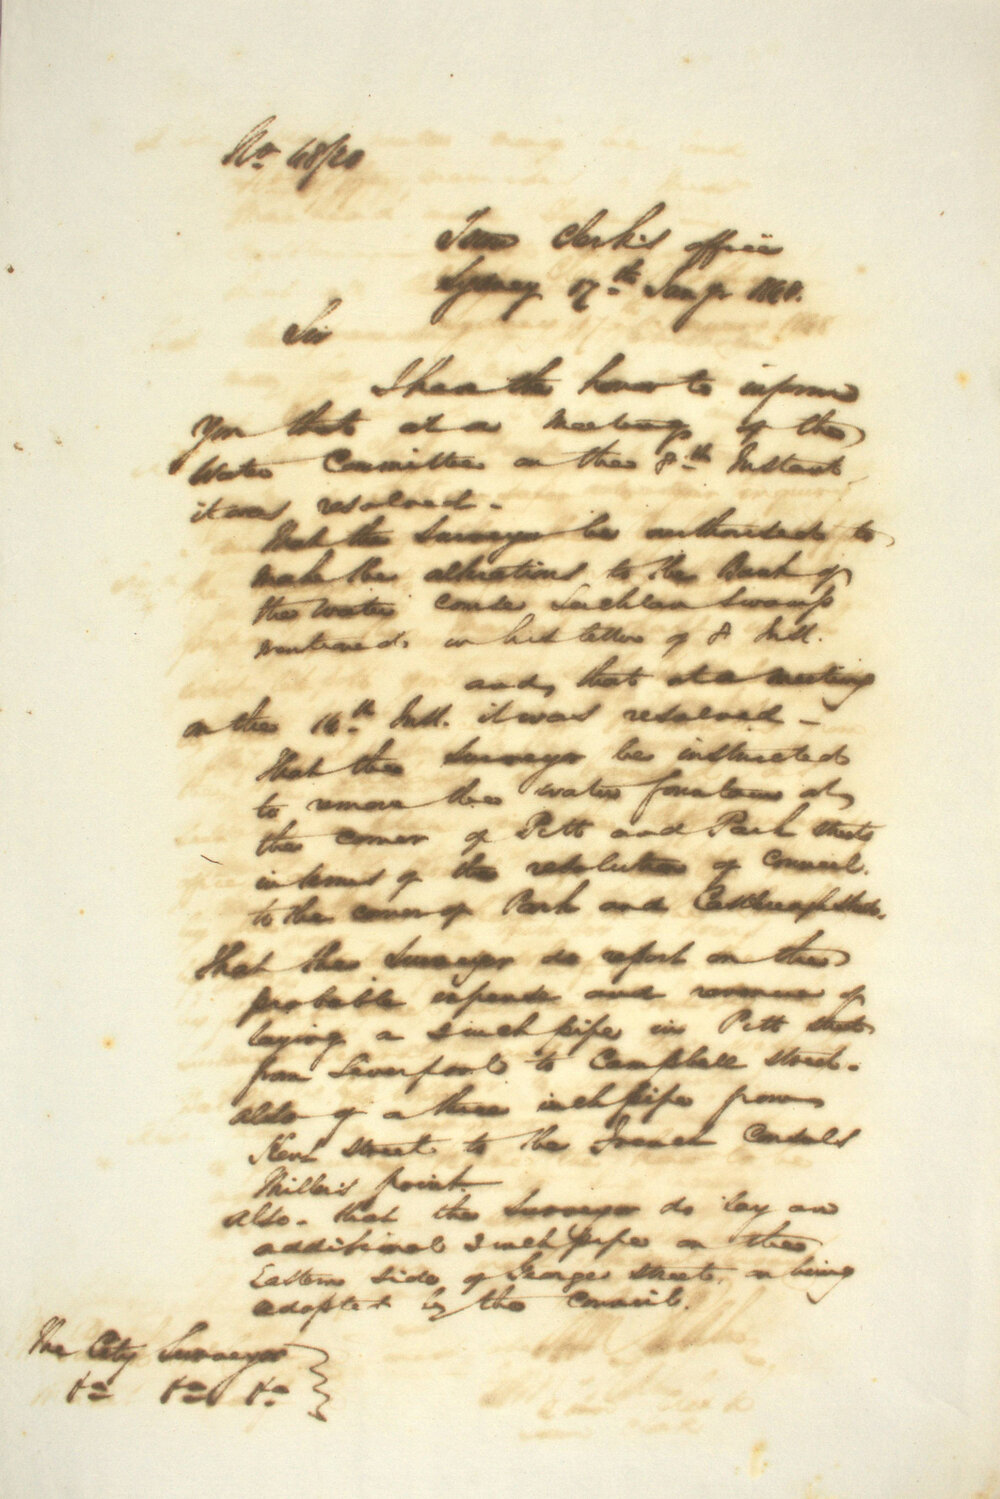 No. 48/20
Town Clerk's office
Sydney 17th Jany 1848.
Sir
I have the honor to inform
you that at a Meeting of the
Water Committee on the 8th Instant
it was resolved -
That the Surveyor be authorised to
make the alterations to the Bank of
the Water course Lachlan Swamp
mentioned in his letter of 8 Inst.
and, that at a meeting
on the 14th Inst. it was resolved -
That the Surveyor be instructed
to remove the water fountain at
the corner of Pitt and Park streets
in terms of the resolution of Council.
to the corner of Park and Castlereagh Streets.
That the Surveyor do report on the
probable expense and revenue of
laying a 3 inch pipe in Pitt street
from Liverpool to Campbell street.
also of a three inch pipe from
Kent street to the French Consuls
Millers point.
also - that the Surveyor do lay an
additional 3 inch pipe on the
Eastern side of George street, on being
adopted by the Council.
The City Surveyor
&c &c &c